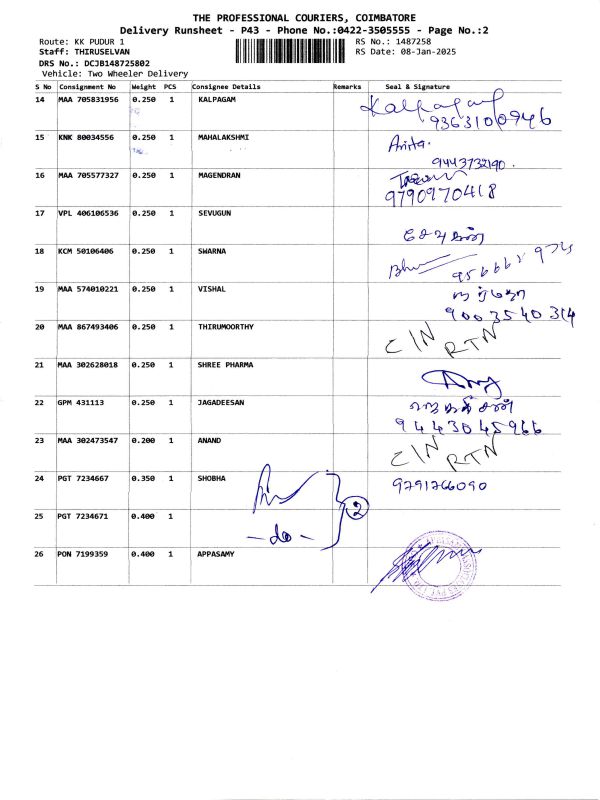 THE PROFESSIONAL COURIERS, COIMBATORE
Delivery Runsheet - P43 - Phone No.:0422-3505555 - Page No.:2
Route: KK PUDUR 1 RS No.: 1487258
Staff: THIRUSELVAN RS Date: 08-Jan-2025
DRS No.: DCJB148725802
Vehicle: Two Wheeler Delivery
S No Consignment No Weight PCS Consignee Details Remarks Seal & Signature
14 MAA 705831956 0.250 1 KALPAGAM Kalpagam
9363100946
15 KNK 80034556 0.250 1 MAHALAKSHMI Anita.
9443732190.
16 MAA 705577327 0.250 1 MAGENDRAN
9790970418
17 VPL 406106536 0.250 1 SEVUGUN
சேவுகன்
18 KCM 50106406 0.250 1 SWARNA
19 MAA 574010221 0.250 1 VISHAL
9003540314
20 MAA 867493406 0.250 1 THIRUMOORTHY C/N RTN
21 MAA 302628018 0.250 1 SHREE PHARMA
22 GPM 431113 0.250 1 JAGADEESAN ஜெகதீசன்
9443045966
23 MAA 302473547 0.200 1 ANAND C/N RTN
24 PGT 7234667 0.350 1 SHOBHA 2 9791766090
25 PGT 7234671 0.400 1 - do -
26 PON 7199359 0.400 1 APPASAMY